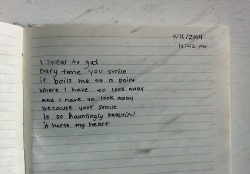 4/11/2014
12:42 AM
I swear to god
every time you smile
it boils me to a point
where I have to look away
and I have to look away
because your smile
is so hauntingly beautiful
it hurts my heart